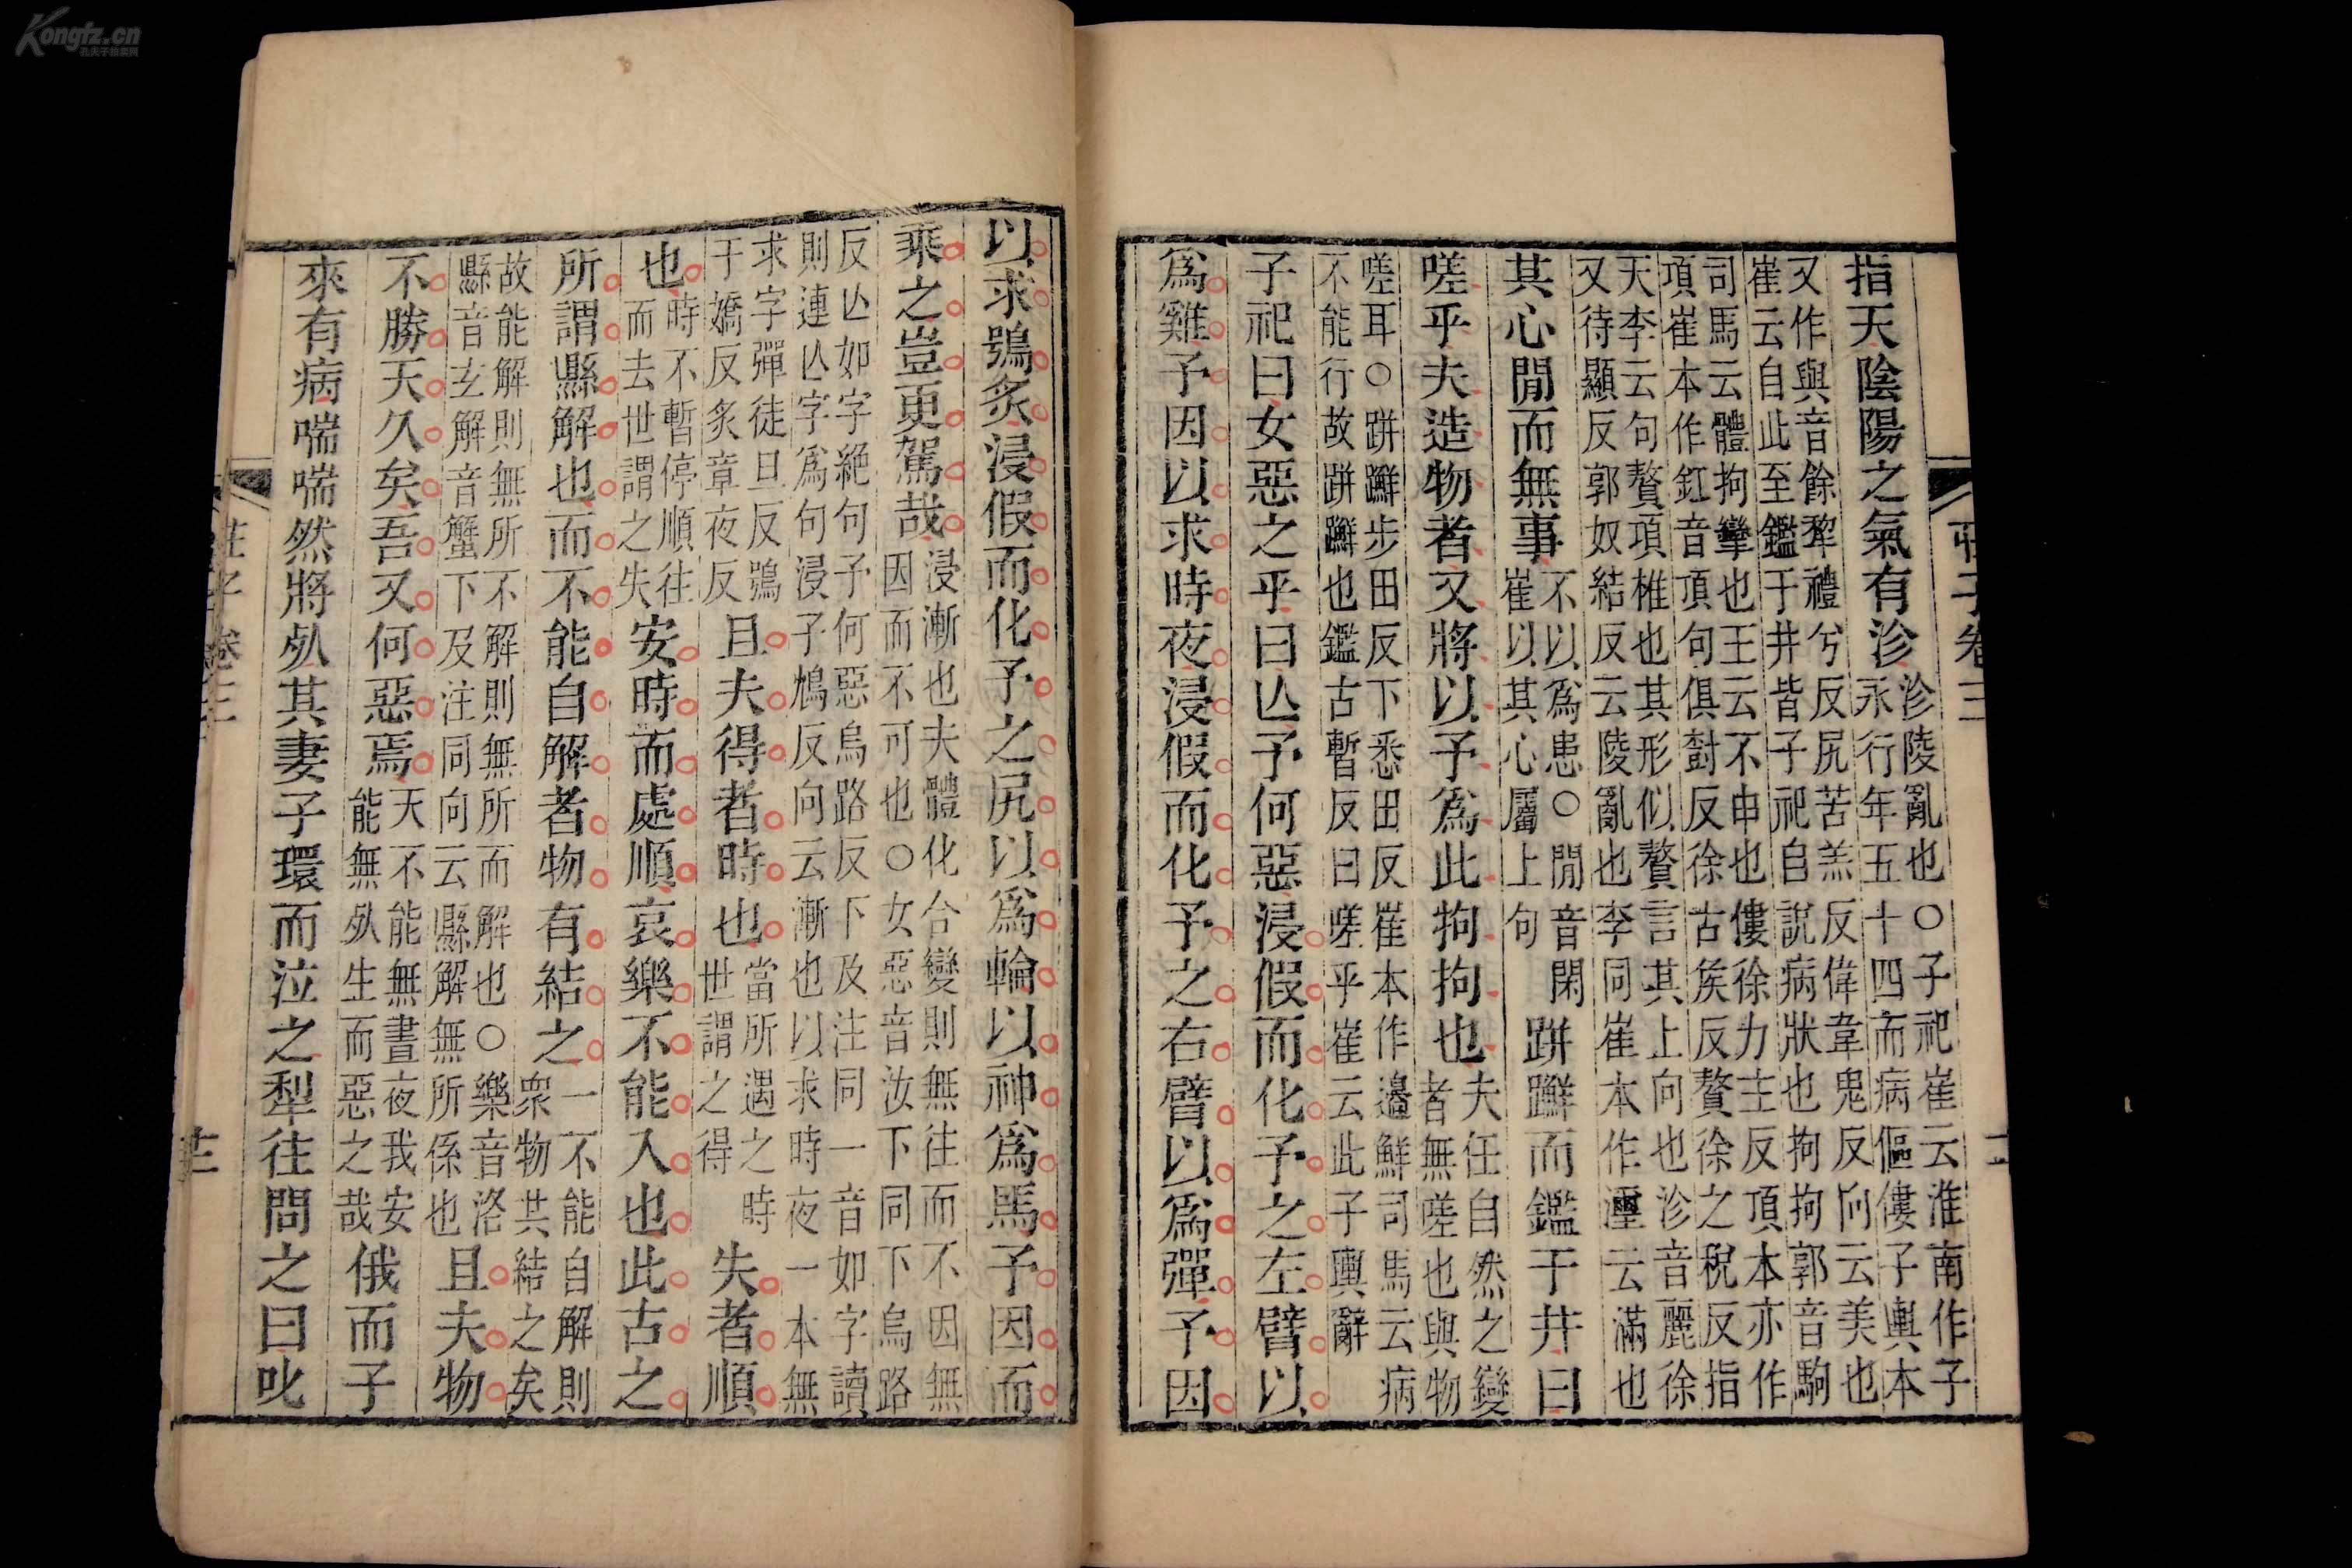 指天陰陽之氣有沴
沴陵亂也○子祀崔云淮南作子
永行年五十四而病傴僂子輿本
又作與音餘犂禮兮反尻苦羔反偉韋鬼反向云美也
崔云自此至鑑于井皆子祀自說病狀也拘拘郭音駒
司馬云體拘攣也王云不申也僂徐力主反項本亦作
項崔本作釭音項句俱尌反徐古矦反贅徐之稅反指
天李云句贅項椎也其形似贅言其上向也沴音麗徐
又待顯反郭奴結反云陵亂也李同崔本作壐云滿也
其心閒而無事
不以爲患○閒音閑
崔以其心屬上句
跰𨇤而鑑于井曰
嗟乎夫造物者又將以予爲此拘拘也
夫任自然之變
者無嗟也與物
嗟耳○跰𨇤步田反下悉田反崔本作邊鮮司馬云病
不能行故跰𨇤也鑑古暫反曰嗟乎崔云此子輿辭
子祀曰女惡之乎曰亾予何惡浸假而化予之左臂以
爲雞予因以求時夜浸假而化予之右臂以爲彈予因
莊子卷三
以求鴞炙浸假而化予之尻以爲輪以神爲馬予因而
乘之豈更駕哉
浸漸也夫體化合變則無往而不因無
因而不可也○女惡音汝下同下烏路
反亾如字絕句予何惡烏路反下及注同一音如字讀
則連亾字爲句浸子鴆反向云漸也以求時夜一本無
求字彈徒旦反鴞
于嬌反炙章夜反
且夫得者時也
當所遇之時
世謂之得
失者順
也
時不暫停順往
而去世謂之失
安時而處順哀樂不能入也此古之
所謂縣解也而不能自解者物有結之
一不能自解則
衆物共結之矣
故能解則無所不解則無所而解也○樂音洛
縣音玄解音蟹下及注同向云縣解無所係也
且夫物
不勝天久矣吾又何惡焉
天不能無晝夜我安
能無㱙生而惡之哉
俄而子
來有病喘喘然將㱙其妻子環而泣之犁往問之曰叱
莊子卷三
Kongfz.cn
孔夫子旧书网